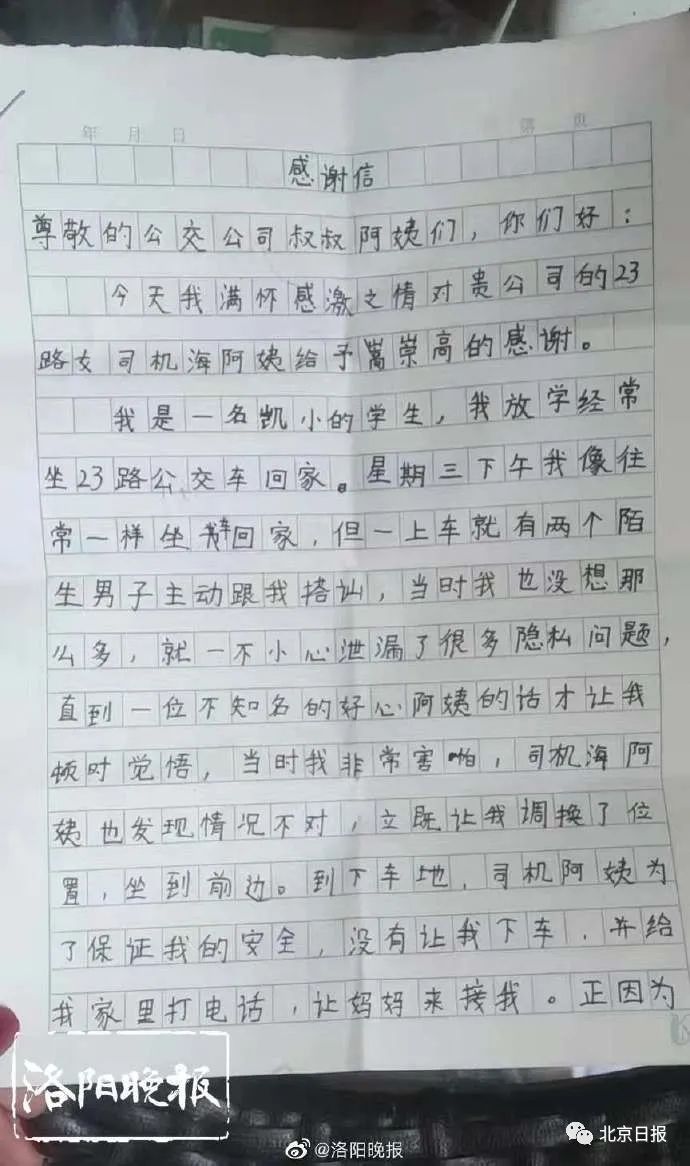 年 月 日 第 页
感谢信
尊敬的公交公司叔叔阿姨们，你们好：
今天我满怀感激之情对贵公司的23
路女司机海阿姨给予嵩崇高的感谢。
我是一名凯小的学生，我放学经常
坐23路公交车回家。星期三下午我像往
常一样坐车回家，但一上车就有两个陌
生男子主动跟我搭讪，当时我也没想那
么多，就一不小心泄漏了很多隐私问题，
直到一位不知名的好心阿姨的话才让我
顿时觉悟，当时我非常害怕，司机海阿
姨也发现情况不对，立既让我调换了位
置，坐到前边。到下车地，司机阿姨为
了保证我的安全，没有让我下车，并给
我家里打电话，让妈妈来接我。正因为
洛阳晚报
@洛阳晚报
北京日报